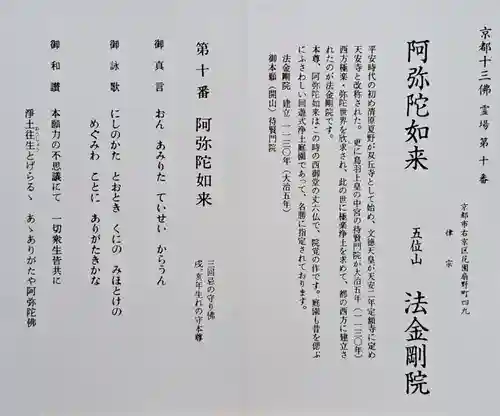 京都十三佛霊場第十番
京都市右京区花園扇野町四九
律宗
阿弥陀如来 五位山 法金剛院
平安時代の初め清原夏野が双丘寺として始め、文徳天皇が天安二年定額寺に定め
天安寺と改称された。更に鳥羽上皇の中宮の待賢門院が大治五年(一一三〇年)
西方極楽・弥陀世界を欣求され、此の世に極楽浄土を求めて、都の西方に建立さ
れたのが法金剛院です。
本尊、阿弥陀如来はこの時の西御堂の丈六仏で、院覚の作です。庭園も昔を偲ぶ
にふさわしい回遊式浄土庭園であって、名勝に指定されております。
法金剛院 建立 一一三〇年(大治五年)
御本願(開山)待賢門院
第十番 阿弥陀如来
三回忌の守り佛
戌、亥年生れの守本尊
御真言 おん あみりた ていせい からうん
御詠歌 にしのかた とおとき くにの みほとけの
めぐみわ ことに ありがたきかな
御和讃 本願力の不思議にて 一切衆生皆共に
浄土往生とげらるゝ あゝありがたや阿弥陀佛